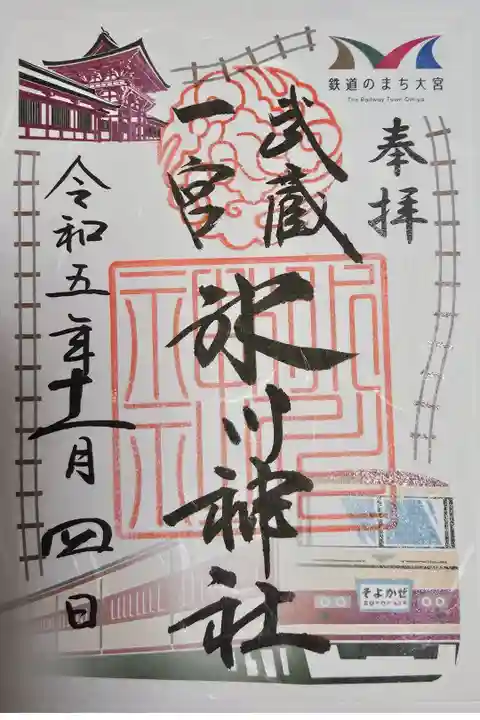 鉄道のまち大宮
The Railway Town Omiya
奉拝
武蔵
一宮
氷川神社
令和五年十一月四日
そよかぜ